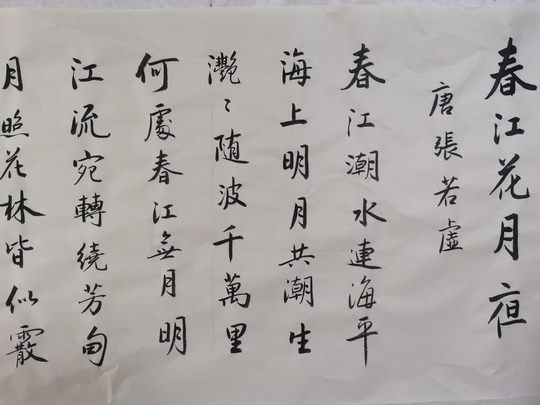 春江花月夜
唐張若虛
春江潮水連海平
海上明月共潮生
灧〻随波千萬里
何處春江無月明
江流宛轉繞芳甸
月照花林皆似霰